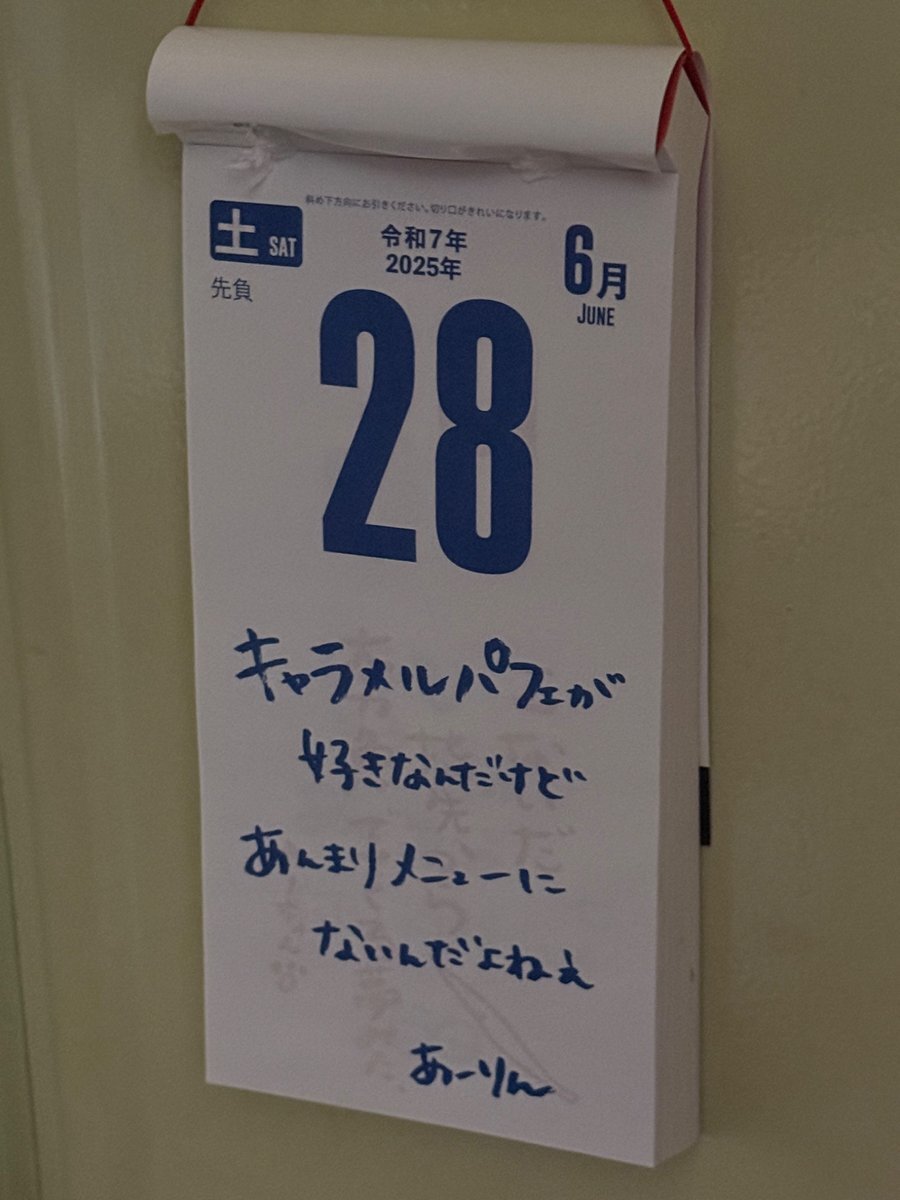 斜め下方向にお引きください。切り口がきれいになります。
土 SAT
令和7年
2025年
6月
JUNE
先負
28
キャラメルパフェが
好きなんだけど
あんまりメニューに
ないんだよねぇ
あーりん